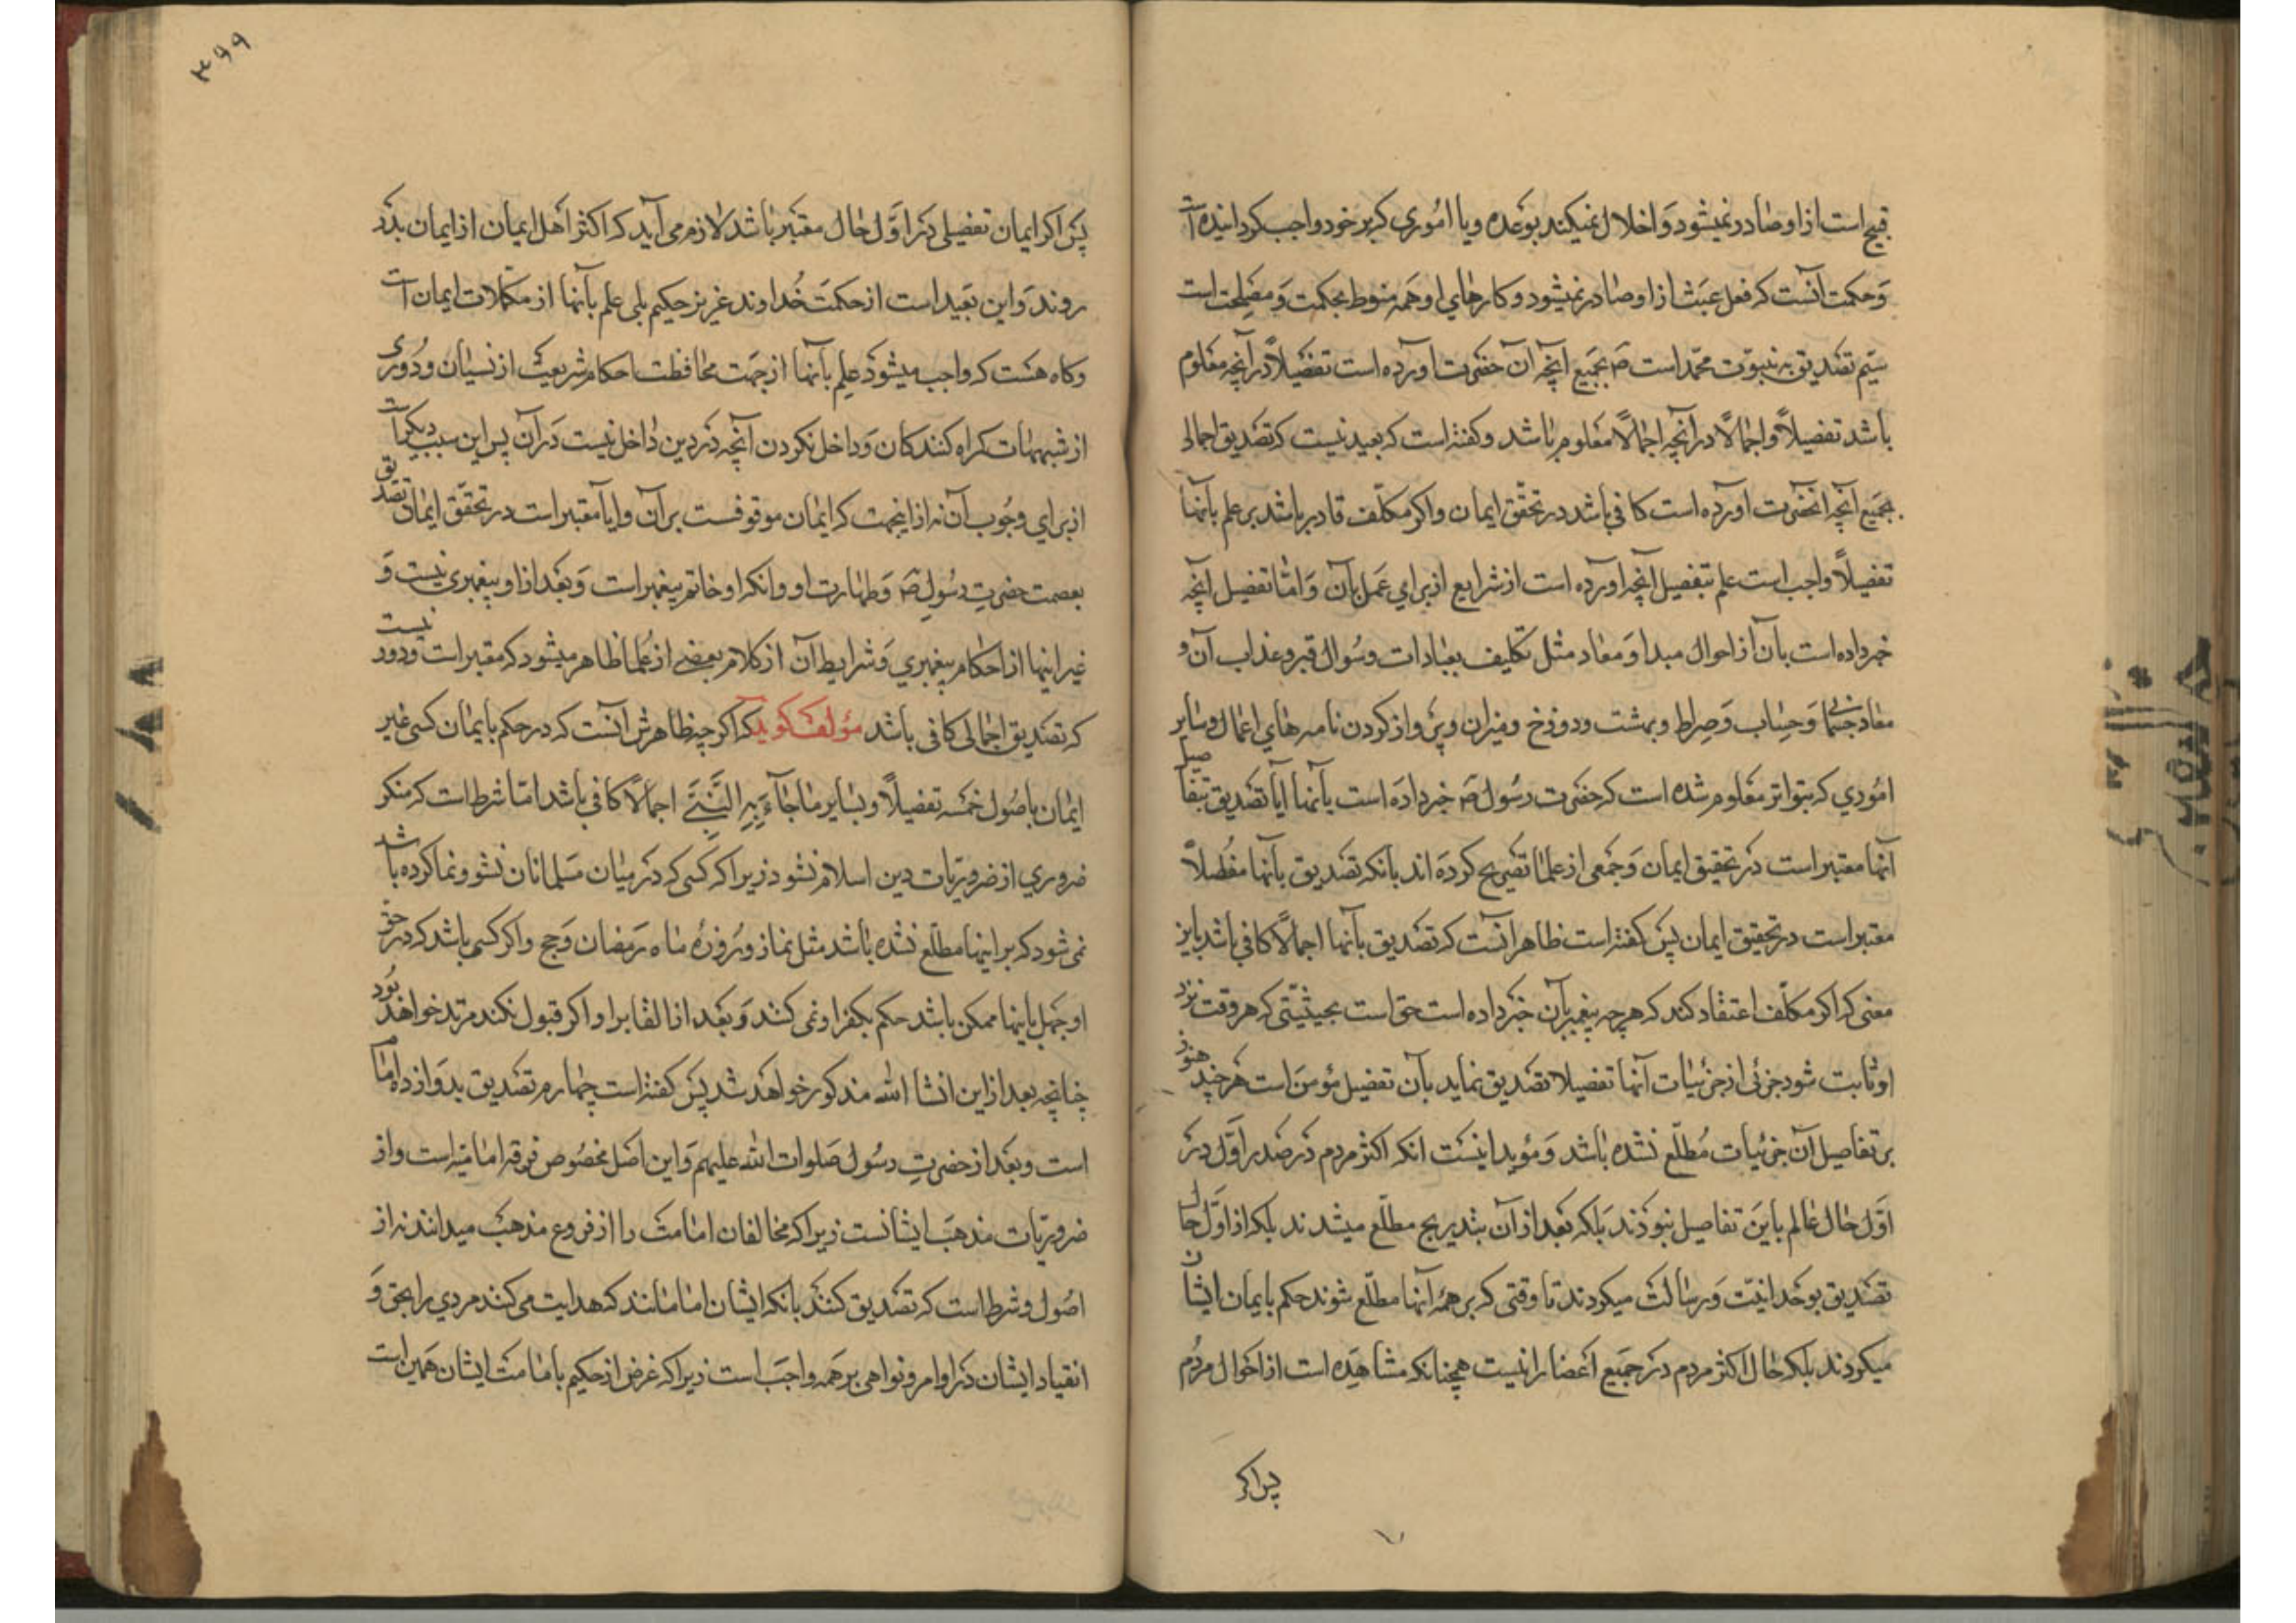 قبیح است از او صادر نمیشود و اخلال نمیکند بوعده و یا اموری که بر خود واجب کردانیده است
و حکمت آنست که فعل عبث از او صادر نمیشود و کارهای او همه منوط بحکمت و مصلحت است
سیم تصدیق به نبوّت محمّد است ص بجمیع آنچه آن حضرت آورده است تفصیلاً در آنچه معلوم
باشد تفصیلاً و اجمالاً در آنچه اجمالاً معلوم باشد و کفته است که بعید نیست که تصدیق اجمالی
بجمیع آنچه آنحضرت آورده است کافی باشد در تحقّق ایمان و اکر مکلّف قادر باشد بر علم بآنها
تفصیلاً واجب است علم بتفصیل آنچه آورده است از شرایع از برای عمل بآن و امّا تفصیل آنچه
خبر داده است بآن از احوال مبدا و معاد مثل تکلیف بعبادات و سؤال قبر و عذاب آن و
معاد جسمانی و حساب و صراط و بهشت و دوزخ و میزان و پرواز کردن نامه های اعمال و سایر
اموری که بتواتر معلوم شده است که حضرت رسول ص خبر داده است بآنها آیا تصدیق بتفاصیل
آنها معتبر است در تحقیق ایمان و جمعی از علما تصریح کرده اند بآنکه تصدیق بآنها مفصّلاً
معتبر است در تحقیق ایمان پس کفته است ظاهر آنست که تصدیق بآنها اجمالاً کافی باشد باین
معنی که اکر مکلّف اعتقاد کند که هرچه پیغمبر بآن خبر داده است حق است بحیثیّتی که هر وقت نزد
او ثابت شود جزئی از جزئیات آنها تفصیلا تصدیق نماید بآن تفصیل مؤمن است هر چند هنوز
بر تفاصیل آن جزئیات مطّلع نشده باشد و مؤید اینست انکه اکثر مردم در صدر اوّل در
اوّل حال عالم باین تفاصیل نبودند بلکه بعد از آن بتدریج مطّلع میشدند بلکه از اوّل حال
تصدیق بوحدانیّت و رسالت میکردند تا وقتی که بر همهٔ آنها مطّلع شوند حکم بایمان ایشان
میکردند بلکه حال اکثر مردم در جمیع اعصار اینست همچنانکه مشاهده است از احوال مردم
پس اکر
۳۹۹
پس اکر ایمان تفصیلی در اوّل حال معتبر باشد لازم می آید که اکثر اهل ایمان از ایمان بدر
روند و این بعید است از حکمت خداوند عزیز حکیم بلی علم بآنها از مکمّلات ایمان است
و کاه هست که واجب میشود علم بآنها از جهت محافظت احکام شریعت از نسیان و دوری
از شبهات کمراه کنندکان و داخل نکردن آنچه در دین داخل نیست در آن پس این سبب دیکر است
از برای وجوب آن نه از اینجهت که ایمان موقوفست بر آن و آیا معتبر است در تحقّق ایمان تصدیق
بعصمت حضرت رسول ص و طهارت او و انکه او خاتم پیغمبر است و بعد از او پیغمبری نیست و
غیر اینها از احکام پیغمبری و شرایط آن از کلام بعضی از علما ظاهر میشود که معتبر است و دور نیست
که تصدیق اجمالی کافی باشد مؤلف کوید که اکرچه ظاهرش آنست که در حکم بایمان کسی غیر
ایمان باصول خمسه تفصیلاً و بسایر ما جآءَ به النّبیّ اجمالاً کافی باشد امّا شرط است که منکر
ضروری از ضروریّات دین اسلام نشود زیرا که کسی که در میان مسلمانان نشو و نما کرده باشد
نمی شود که بر اینها مطّلع نشده باشد مثل نماز و روزهٔ ماه رمضان و حج و اکر کسی باشد که در حق
او جهل باینها ممکن باشد حکم بکفر او نمی کنند و بعد از القا بر او اکر قبول نکند مرتد خواهد بود
چنانچه بعد از این انشا الله مذکور خواهد شد پس کفته است چهارم تصدیق بدوازده امام
است و بعد از حضرت رسول صلوات الله علیهم و این اصل مخصوص فرقه امامیّه است و از
ضروریّات مذهب ایشانست زیرا که مخالفان امامت را از فروع مذهب میدانند نه از
اصول و شرط است که تصدیق کنند بآنکه ایشان امامانند که هدایت می کنند مردی را بحق و
انقیاد ایشان در اوامر و نواهی بر همه واجب است زیرا که غرض از حکیم بامامت ایشان همین است